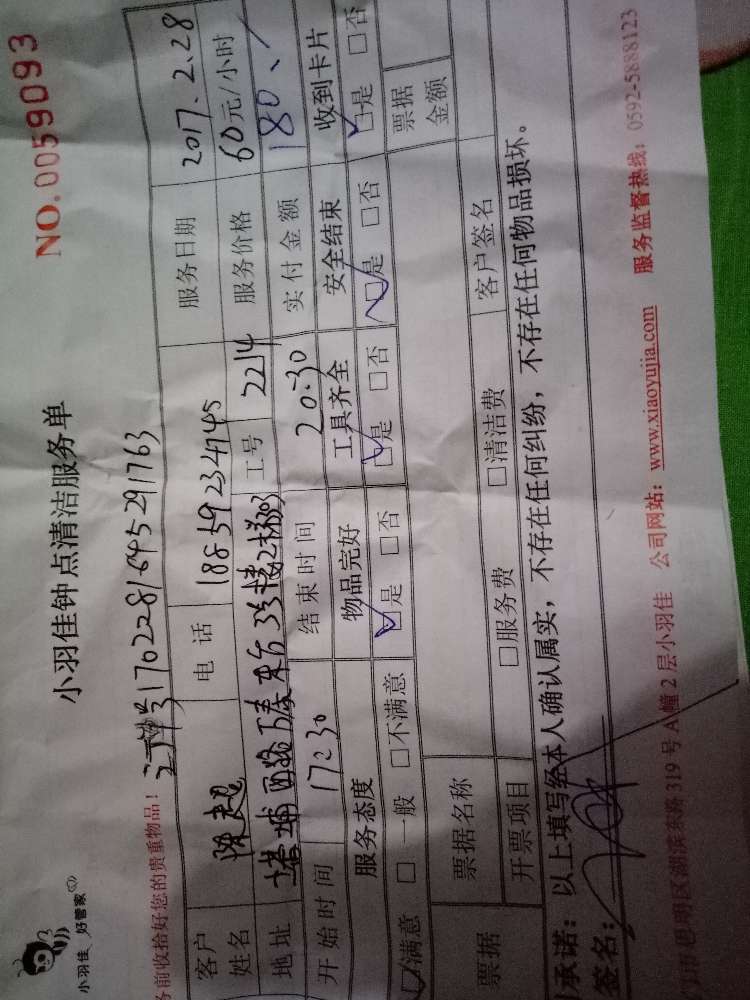 小羽佳 好管家
小羽佳钟点清洁服务单
NO.0059093
务前收拾好您的贵重物品！ 订单号1702281645291763
客户姓名 陈超 电话 18859234745 服务日期 2017.2.28
地址 塘埔西路万泰东方 33幢2梯303 工号 2214 服务价格 60元/小时
开始时间 17:30 结束时间 20:30 实付金额 180.
服务态度 物品完好 工具齐全 安全结束 收到卡片
☑满意 □一般 □不满意 ☑是 □否 ☑是 □否 ☑是 □否 ☑是 □否
票据 票据名称 票据金额
开票项目 □服务费 □清洁费 客户签名
承诺：以上填写经本人确认属实，不存在任何纠纷，不存在任何物品损坏。
签名：
门市思明区湖滨东路319号A幢2层小羽佳 公司网站：www.xiaoyujia.com 服务监督热线：0592-5888123